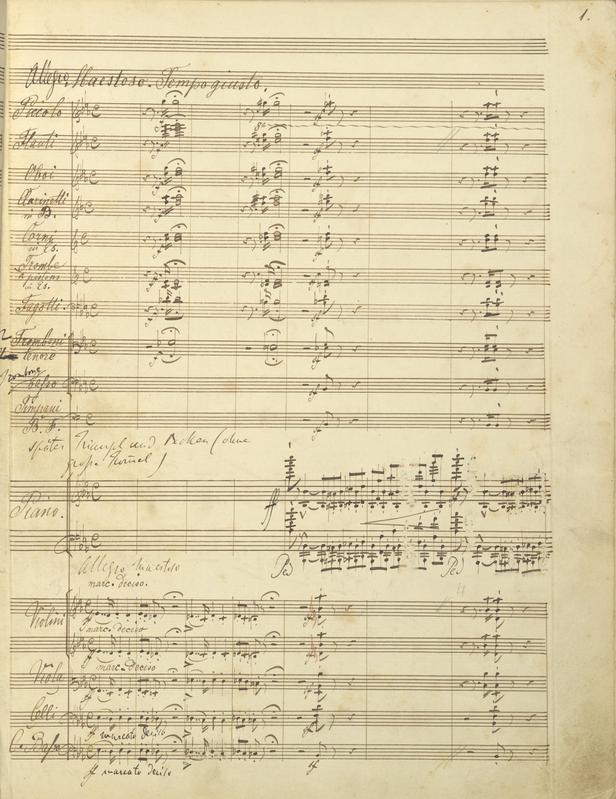 1.
Allegro Maestoso. Tempo giusto.
Piccolo
Flauti
8va
Oboi
Clarinetti
in B.
Corni
in Es.
Trombe
in Es.
Fagotti.
2 Tromboni
tenore
Trombone
Basso
Timpani
B. F.
später Triangel und Becken (ohne
große Trommel)
Piano.
ff
Ped
Ped
Allegro Maestoso
marc. deciso.
Violini
ff marc. deciso
ff marc. deciso
Viola
ff
Celli
ff marcato deciso
C. Basso
ff marcato deciso